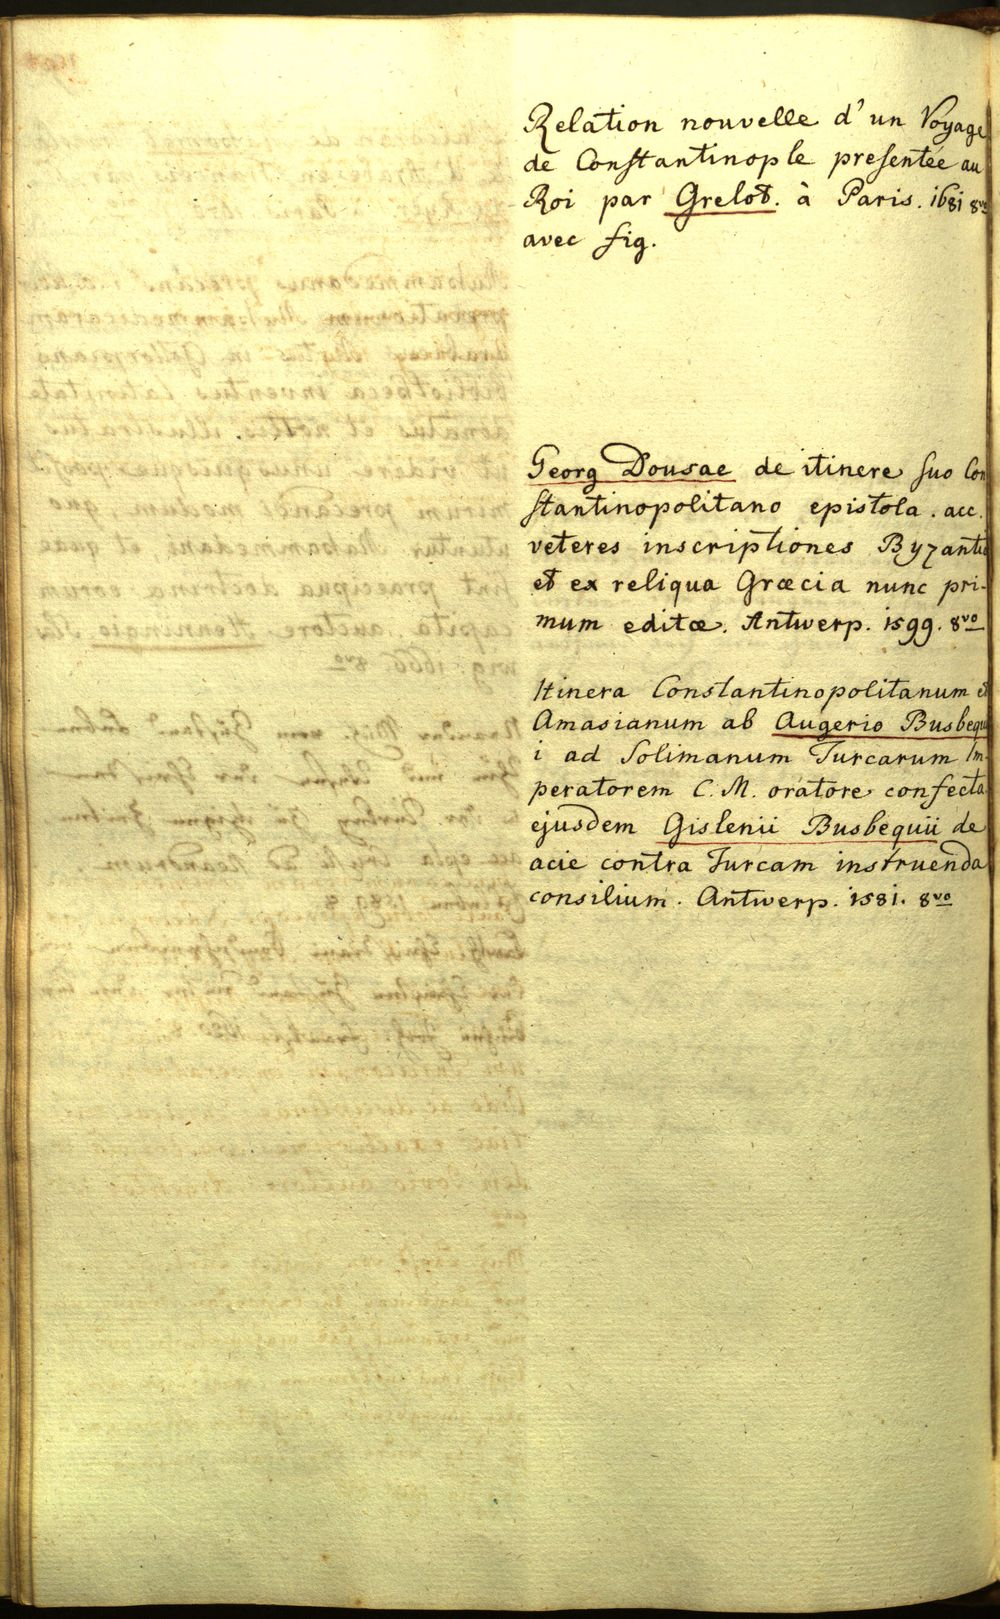 Relation nouvelle d'un Voyage
de Constantinople presentée au
Roi par Grelot. à Paris. 1681 8vo
avec fig.
Georg Dousae de itinere suo Con
stantinopolitano epistola. acc.
veteres inscriptiones Byzantio
et ex reliqua Græcia nunc pri-
mum editæ. Antwerp. 1599. 8vo
Itinera Constantinopolitanum et
Amasianum ab Augerio Busbequ
i ad Solimanum Turcarum Im-
peratorem C. M. oratore confecta
ejusdem Gislenii Busbequii de
acie contra Turcam instruenda
consilium. Antwerp. 1581. 8vo